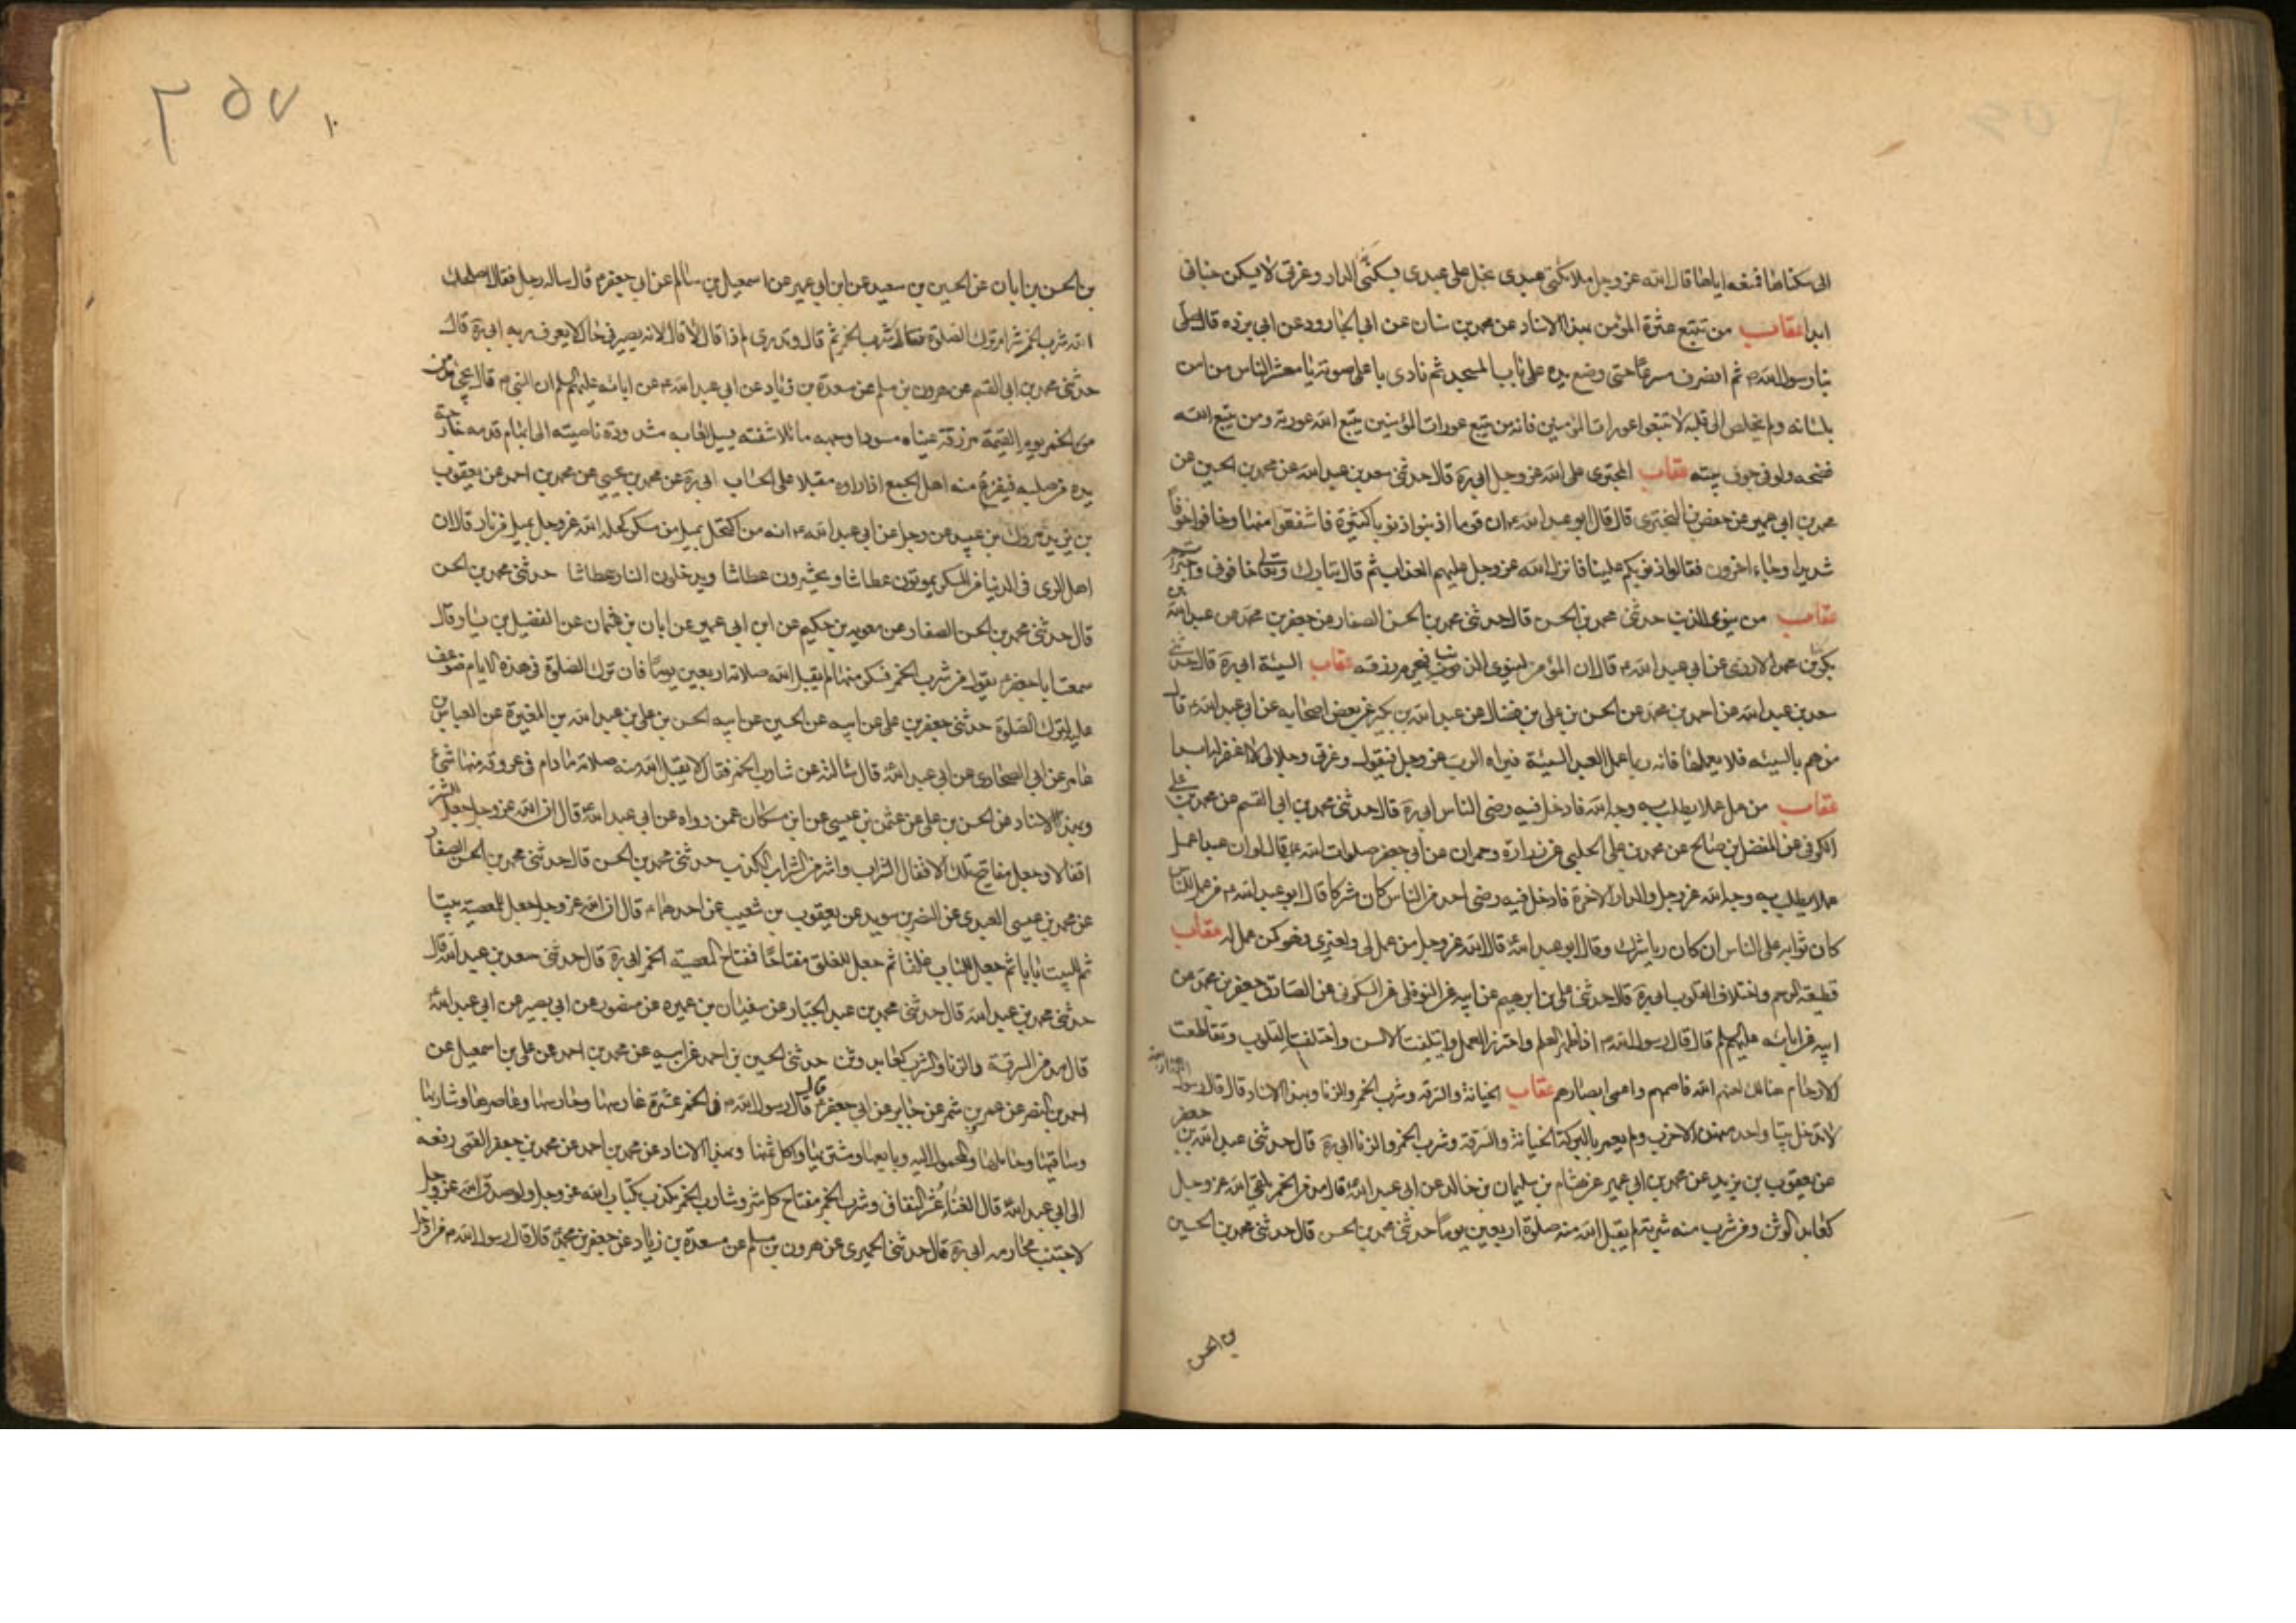 الى سكناها فمنعه اياها قال الله عز وجل ملائكتى عبدى بخل على عبدى بسكنى الدار وعزتى لا يسكن جنانى
ابدا عقاب من تتبع عثرة المؤمن بهذا الاسناد عن محمد بن سنان عن ابى الجارود عن ابى برزه قال صلى
بنا رسول الله ص ثم انصرف مسرعا حتى وضع يده على باب المسجد ثم نادى باعلى صوته يا معشر الناس من امن
بلسانه ولم يخلص الى قلبه لا تتبعوا عورات المؤمنين فانه من تتبع عورات المؤمنين يتبع الله عورته ومن تتبع الله
فضحه ولو فى جوف بيته عقاب المجترى على الله عز وجل ابى ره قال حدثنى سعد بن عبد الله عن محمد بن الحسين عن
محمد بن ابى عمير عن حفص بن البخترى قال قال ابو عبد الله ع ان قوما اذنبوا ذنوبا كثيرة فاشفقوا منها وخافوا خوفا
شديدا وجاء اخرون فقالوا ذنوبكم علينا فانزل الله عز وجل عليهم العذاب ثم قال تبارك وتعالى خافونى واجتراتم
عقاب من ينوى الذنب حدثنى محمد بن الحسن قال حدثنى محمد بن الحسن الصفار عن جعفر بن محمد عن عبد الله
بكر بن محمد الازدى عن ابى عبد الله ع قال ان المؤمن لينوى الذنب فيحرم رزقه عقاب السيئة ابى ره قال حدثنى
سعد بن عبد الله عن احمد بن محمد عن الحسن بن على بن فضال عن عبد الله بن بكير عن بعض اصحابه عن ابى عبد الله ع قال
من هم بالسيئه فلا يعملها فانه ربما عمل العبد السيئة فيراه الرب عز وجل فيقول وعزتى وجلالى لا اغفر له ابدا
عقاب من عمل عملا يطلب به وجه الله فادخل فيه رضى الناس ابى ره قال حدثنى محمد بن ابى القسم عن محمد بن على
الكوفى عن المفضل بن صالح عن محمد بن على الحلبى عن زرارة وحمران عن ابى جعفر صلوات الله عليه قال لو ان عبدا عمل
عملا يطلب به وجه الله عز وجل والدار الاخرة فادخل فيه رضى احد من الناس كان شركا قال ابو عبد الله ع من عمل للناس
كان ثوابه على الناس ان كان ريا شرك وقال ابو عبد الله ع قال الله عز وجل من عمل لى ولغيرى فهو كمن عمل له عقاب
قطيعة الرحم واختلاف القلوب ابى ره قال حدثنى على بن ابرهيم عن ابيه عن النوفلى عن السكونى عن الصادق جعفر بن محمد عن
ابيه عن ابائه عليهم السلم قال قال رسول الله ص اذا ظهر العلم واحترز العمل وايتلفت الالسن واختلفت القلوب وتقاطعت
الارحام هنالك لعنهم الله فاصمهم واعمى ابصارهم عقاب الخيانة والسرقة وشرب الخمر والزنا وبهذا الاسناد قال قال رسول
لا تدخل بيتا واحدة منهن الا خرب ولم يعمر بالبركة الخيانة والسرقة وشرب الخمر والزنا ابى ره قال حدثنى عبد الله بن جعفر
عن يعقوب بن يزيد عن محمد بن ابى عمير عن هشام بن سليمان بن خالد عن ابى عبد الله ع قال مدمن الخمر يلقى الله عز وجل
كعابد الوثن ومن شرب منه شربة لم يقبل الله منه صلوة اربعين يوما حدثنى محمد بن الحسن قال حدثنى محمد بن الحسين
بن الحسن
٢٥٧
بن الحسن بن ابان عن الحسين بن سعيد عن ابن ابى عمير عن اسمعيل بن سالم عن ابى جعفر ع قال ساله رجل فقال اصلحك
الله شرب الخمر شر ام ترك الصلوة فقال شرب الخمر ثم قال وتدرى لم ذا قال لا قال لانه يصير فى حال لا يعرف ربه ابى ره قال
حدثنى محمد بن ابى القسم عن هرون بن مسلم عن مسعدة بن زياد عن ابى عبد الله ع عن ابائه عليهم السلم ان النبى ص قال يجئ مدمن
من الخمر يوم القيمة مزرقة عيناه مسودا وجهه مائلا شفته يسيل لعابه مشدودة ناصيته الى ابهام قدمه خارجة
يده من صلبه فيفزع منه اهل الجمع اذا راوه مقبلا على الحساب ابى ره عن محمد بن يحيى عن محمد بن احمد عن يعقوب
بن يزيد عن مروك بن عبيد عن رجل عن ابى عبد الله ع انه من اكتحل بميل من مسكر كحله الله عز وجل بميل من نار قال ان
اهل الرى فى الدنيا من المسكر يموتون عطاشا ويحشرون عطاشا ويدخلون النار عطاشا حدثنى محمد بن الحسن
قال حدثنى محمد بن الحسن الصفار عن معويه بن حكيم عن ابن ابى عمير عن ابان بن عثمان عن الفضيل بن يسار قال
سمعت ابا جعفر ع يقول من شرب الخمر فسكر منها لم يقبل الله صلاته اربعين يوما فان ترك الصلوة فى هذه الايام ضوعف
عليه لترك الصلوة حدثنى جعفر بن على عن ابيه عن الحسين عن ابيه الحسن بن على بن عبد الله بن المغيرة عن العباس بن
عامر عن ابى الصحارى عن ابى عبد الله ع قال سالته عن شارب الخمر فقال لا يقبل الله منه صلاته ما دام فى عروقه منها شئ
وبهذا الاسناد عن الحسن بن على عن عثمن بن عيسى عن ابن مسكان عمن رواه عن ابى عبد الله ع قال ان الله عز وجل جعل للشر
اقفالا وجعل مفاتيح تلك الاقفال الشراب واشر من الشراب الكذب حدثنى محمد بن الحسن قال حدثنى محمد بن الحسن الصفار
عن محمد بن عيسى العبيدى عن النضر بن سويد عن يعقوب بن شعيب عن احدهما ع قال ان الله عز وجل جعل للمعصية بيتا
ثم للبيت بابا ثم جعل للباب غلقا ثم جعل للغلق مفتاحا فمفتاح المعصية الخمر ابى ره قال حدثنى سعد بن عبد الله قال
حدثنى محمد بن عبد الله قال حدثنى محمد بن عبد الجبار عن سفيان بن عميره عن منصور عن ابى بصير عن ابى عبد الله ع
قال مدمن السرقة والزنا والشرب كعابد وثن حدثنى الحسين بن احمد عن ابيه عن محمد بن احمد عن على بن اسمعيل عن
احمد بن النضر عن عمرو بن شمر عن جابر عن ابى جعفر ع قال قال رسول الله ص فى الخمر عشرة غارسها وحارسها وعاصرها وشاربها
وساقيها وحاملها والمحمول اليه وبايعها ومشتريها واكل ثمنها وبهذا الاسناد عن محمد بن احمد عن محمد بن جعفر القمى رفعه
الى ابى عبد الله ع قال الغناء عش النفاق وشرب الخمر مفتاح كل شر وشارب الخمر مكذب بكتاب الله عز وجل ولو صدق الله عز وجل
لاجتنب محارمه ابى ره قال حدثنى الحميرى عن هرون بن مسلم عن مسعدة بن زياد عن جعفر بن محمد ع قال قال رسول الله ص من